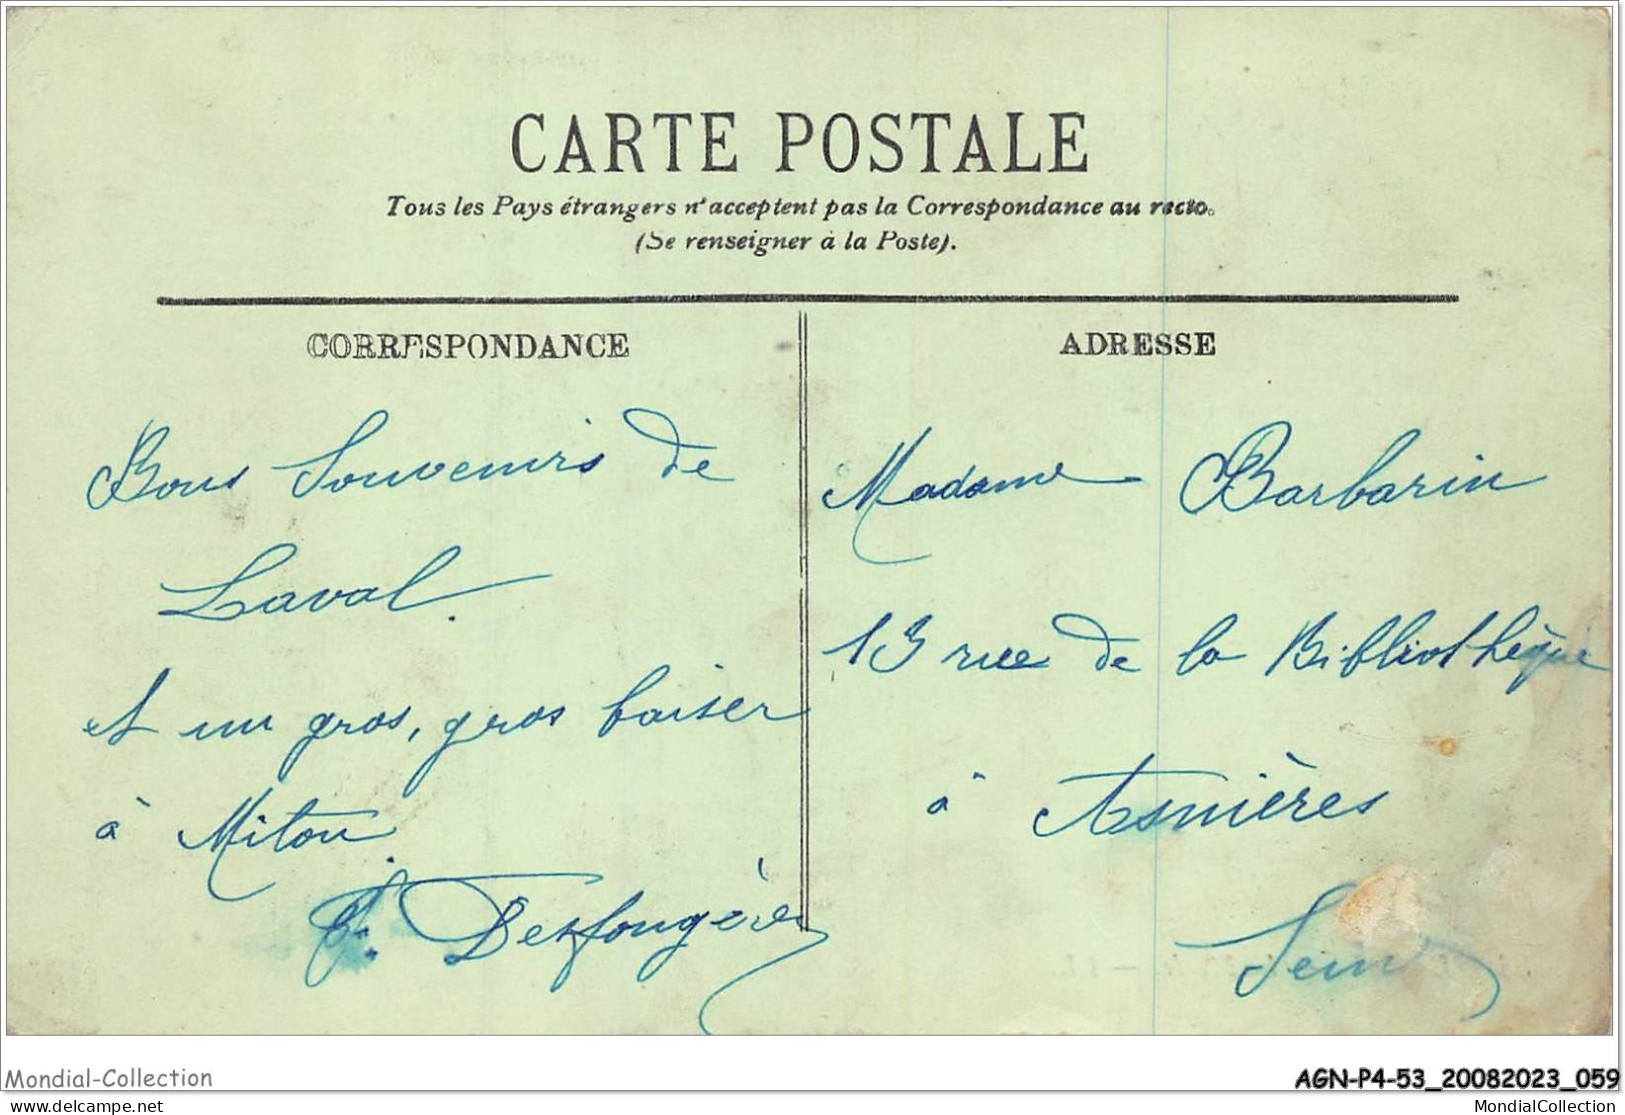 CARTE POSTALE
Tous les Pays étrangers n'acceptent pas la Correspondance au recto.
(Se renseigner à la Poste).
CORRESPONDANCE
Bons Souvenirs de
Laval.
et un gros, gros baiser
à Mitou.
F. Desfougères
ADRESSE
Madame Barbarin
13 rue de la Bibliothèque
à Asnières
Seine
Mondial-Collection
AGN-P4-53_20082023_059
www.delcampe.net
MondialCollection